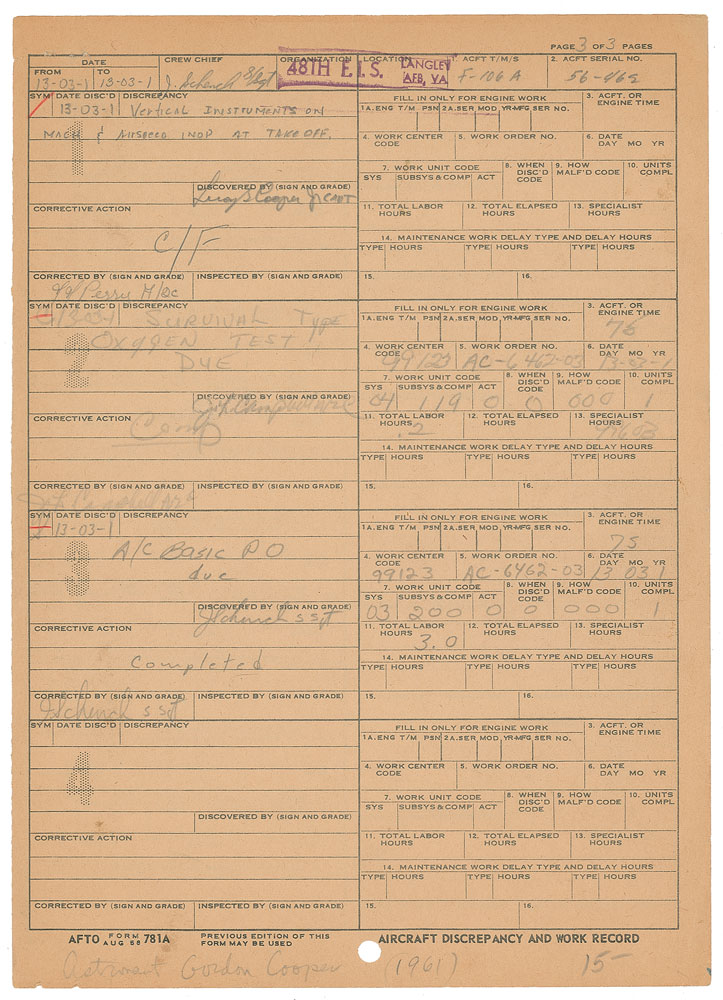 PAGE 3 OF 3 PAGES
DATE
FROM 13-03-1 TO 13-03-1
CREW CHIEF
J. Schench S/Sgt
ORGANIZATION
48TH F.I.S.
LOCATION
LANGLEY
AFB, VA
ACFT T/M/S
F-106A
2. ACFT SERIAL NO.
56-462
SYM DATE DISC'D DISCREPANCY
13-03-1 VERTICAL INSTRUMENTS ON
MACH & AIRSPEED INOP AT TAKE OFF.
1
DISCOVERED BY (SIGN AND GRADE)
Leroy G Cooper Jr CAPT
CORRECTIVE ACTION
C/F
CORRECTED BY (SIGN AND GRADE) INSPECTED BY (SIGN AND GRADE)
Perry
FILL IN ONLY FOR ENGINE WORK
1A.ENG T/M PSN 2A.SER MOD YR-MFG SER NO.
3. ACFT. OR ENGINE TIME
4. WORK CENTER CODE
5. WORK ORDER NO.
6. DATE DAY MO YR
7. WORK UNIT CODE
SYS SUBSYS&COMP ACT
8. WHEN DISC'D CODE
9. HOW MALF'D CODE
10. UNITS COMPL
11. TOTAL LABOR HOURS
12. TOTAL ELAPSED HOURS
13. SPECIALIST HOURS
14. MAINTENANCE WORK DELAY TYPE AND DELAY HOURS
TYPE HOURS TYPE HOURS TYPE HOURS TYPE HOURS
15. 16.
SYM DATE DISC'D DISCREPANCY
SURVIVAL TYPE
OXYGEN TEST
DUE
2
DISCOVERED BY (SIGN AND GRADE)
CORRECTIVE ACTION
Comp
CORRECTED BY (SIGN AND GRADE) INSPECTED BY (SIGN AND GRADE)
FILL IN ONLY FOR ENGINE WORK
1A.ENG T/M PSN 2A.SER MOD YR-MFG SER NO.
3. ACFT. OR ENGINE TIME
75
4. WORK CENTER CODE
99123
5. WORK ORDER NO.
AC-6462-03
6. DATE DAY MO YR
13-03-1
7. WORK UNIT CODE
SYS SUBSYS&COMP ACT
04 119 0
8. WHEN DISC'D CODE
0
9. HOW MALF'D CODE
000
10. UNITS COMPL
1
11. TOTAL LABOR HOURS
.2
12. TOTAL ELAPSED HOURS
13. SPECIALIST HOURS
14. MAINTENANCE WORK DELAY TYPE AND DELAY HOURS
TYPE HOURS TYPE HOURS TYPE HOURS TYPE HOURS
15. 16.
SYM DATE DISC'D DISCREPANCY
13-03-1
A/C BASIC P O
due
3
DISCOVERED BY (SIGN AND GRADE)
J Schench S Sgt
CORRECTIVE ACTION
Completed
CORRECTED BY (SIGN AND GRADE) INSPECTED BY (SIGN AND GRADE)
J Schench S Sgt
FILL IN ONLY FOR ENGINE WORK
1A.ENG T/M PSN 2A.SER MOD YR-MFG SER NO.
3. ACFT. OR ENGINE TIME
75
4. WORK CENTER CODE
99123
5. WORK ORDER NO.
AC-6462-03
6. DATE DAY MO YR
13 03 1
7. WORK UNIT CODE
SYS SUBSYS&COMP ACT
03 200 0
8. WHEN DISC'D CODE
0
9. HOW MALF'D CODE
000
10. UNITS COMPL
1
11. TOTAL LABOR HOURS
3.0
12. TOTAL ELAPSED HOURS
13. SPECIALIST HOURS
14. MAINTENANCE WORK DELAY TYPE AND DELAY HOURS
TYPE HOURS TYPE HOURS TYPE HOURS TYPE HOURS
15. 16.
SYM DATE DISC'D DISCREPANCY
4
DISCOVERED BY (SIGN AND GRADE)
CORRECTIVE ACTION
CORRECTED BY (SIGN AND GRADE) INSPECTED BY (SIGN AND GRADE)
FILL IN ONLY FOR ENGINE WORK
1A.ENG T/M PSN 2A.SER MOD YR-MFG SER NO.
3. ACFT. OR ENGINE TIME
4. WORK CENTER CODE
5. WORK ORDER NO.
6. DATE DAY MO YR
7. WORK UNIT CODE
SYS SUBSYS&COMP ACT
8. WHEN DISC'D CODE
9. HOW MALF'D CODE
10. UNITS COMPL
11. TOTAL LABOR HOURS
12. TOTAL ELAPSED HOURS
13. SPECIALIST HOURS
14. MAINTENANCE WORK DELAY TYPE AND DELAY HOURS
TYPE HOURS TYPE HOURS TYPE HOURS TYPE HOURS
15. 16.
AFTO FORM AUG 58 781A PREVIOUS EDITION OF THIS FORM MAY BE USED AIRCRAFT DISCREPANCY AND WORK RECORD
Astronaut Gordon Cooper (1961) 15-